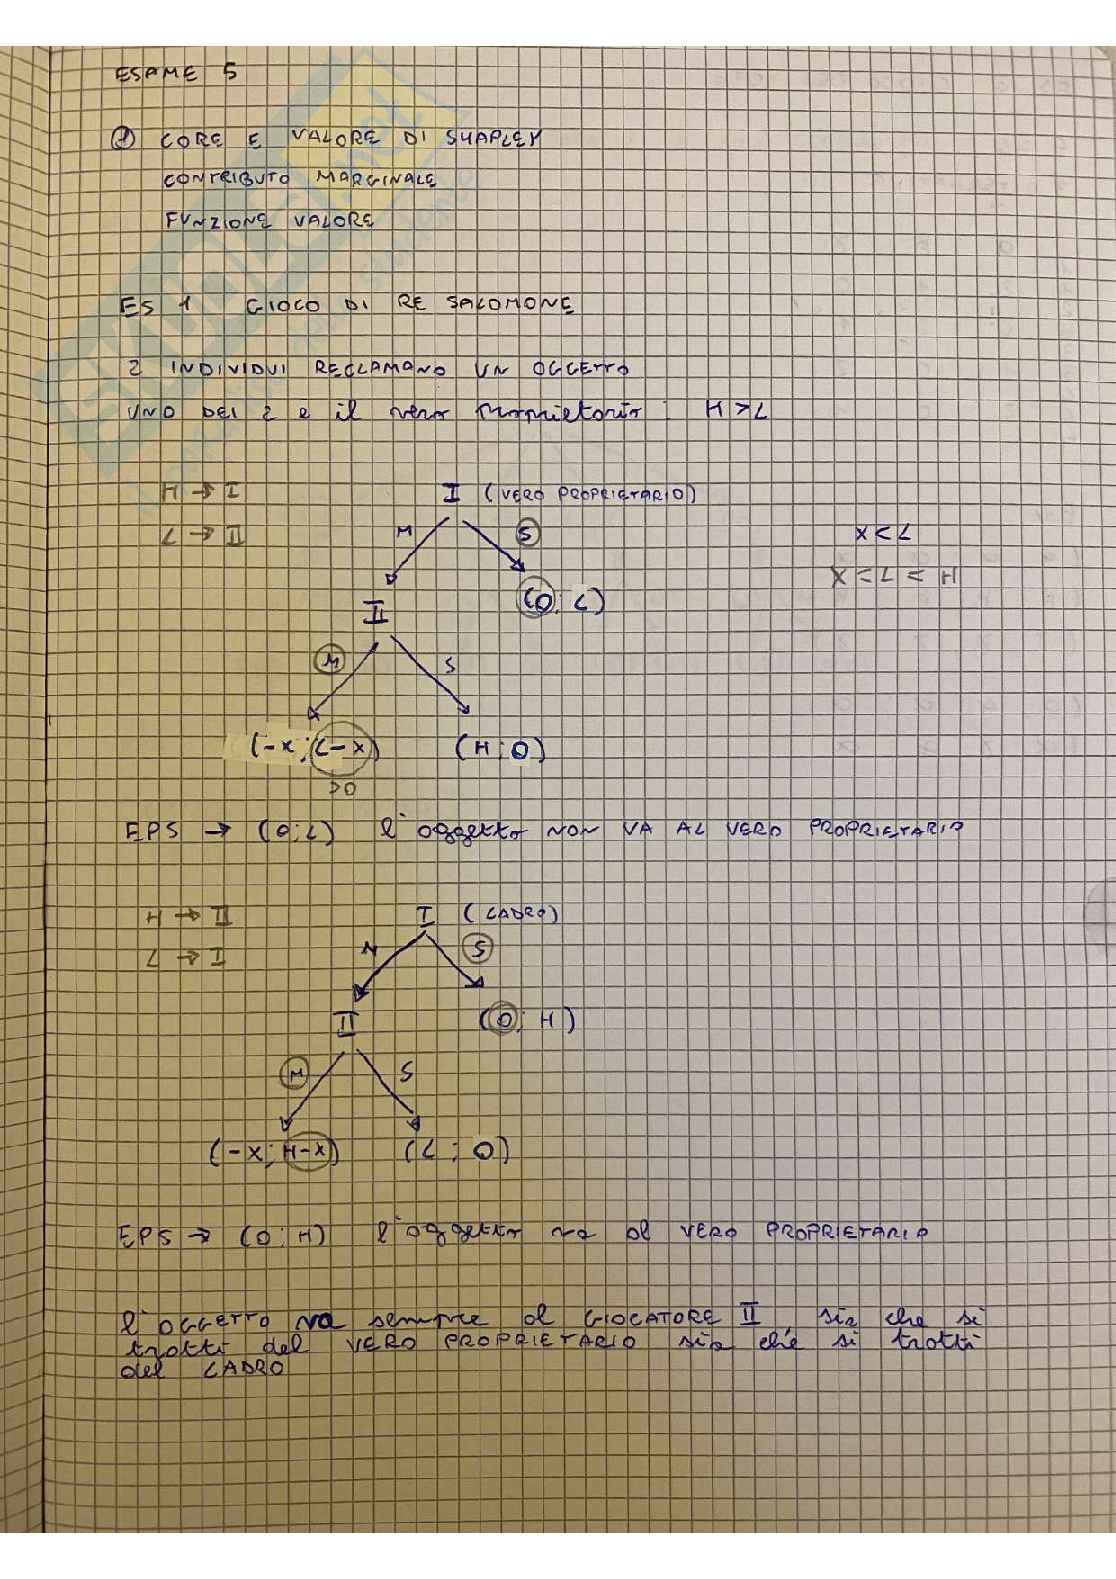 ESAME 5
① CORE E VALORE DI SHAPLEY
CONTRIBUTO MARGINALE
FUNZIONE VALORE
ES 1 GIOCO DI RE SALOMONE
2 INDIVIDUI RECLAMANO UN OGGETTO
UNO DEI 2 e il vero proprietario H>L
I → H
I (VERO PROPRIETARIO)
II → L
M
S
X<L
X<L<H
II
(0; L)
M
S
(-X; L-X)
(H; 0)
>0
EPS → (0; L) l'oggetto NON VA AL VERO PROPRIETARIO
II → H
I (LADRO)
I → L
M
S
II
(0; H)
M
S
(-X; H-X)
(L; 0)
EPS → (0; H) l'oggetto va al VERO PROPRIETARIO
l'OGGETTO va sempre al GIOCATORE II, sia che si
tratti del VERO PROPRIETARIO sia che si tratti
del LADRO